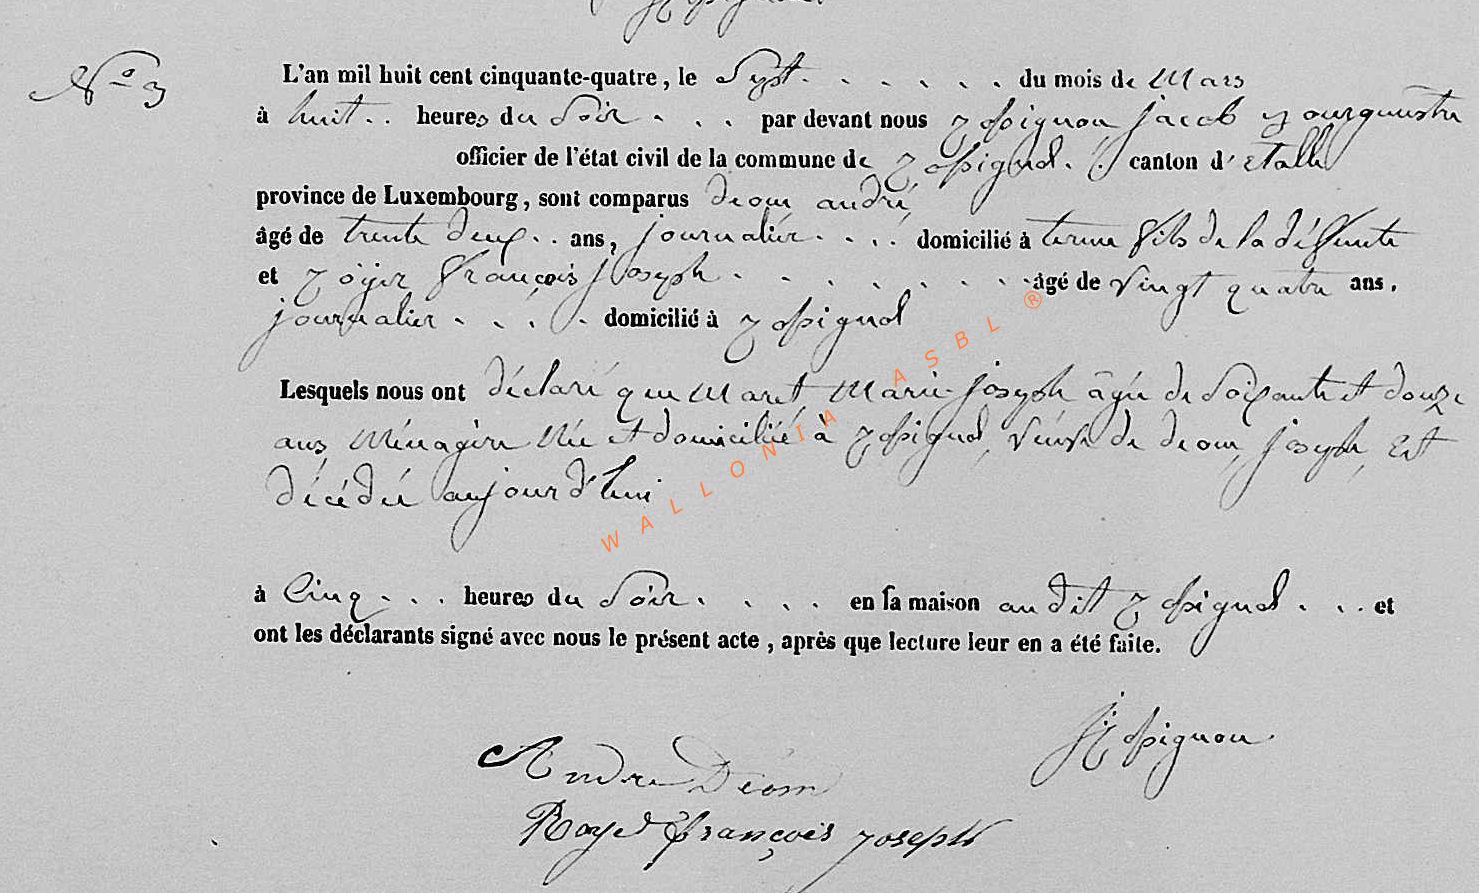 No 3
L'an mil huit cent cinquante-quatre, le Sept . . . . . . du mois de Mars
à huit . . heures du Soir . . . par devant nous Rossignon Jacob Bourgmestre
officier de l'état civil de la commune de Rossignol . canton d'Etalle
province de Luxembourg, sont comparus Deom andré
âgé de trente deux . . ans, journalier . . . . domicilié à termes fils de la défunte
et Royer françois Joseph . . . . . . . . âgé de vingt quatre ans,
journalier . . . . domicilié à Rossignol
Lesquels nous ont déclaré que Maret Marie-Joseph âgée de soixante et douze
ans Ménagère Née et domiciliée à Rossignol, veuve de deom, Joseph, Est
décédée aujourd'hui
à Cinq . . . heures du Soir . . . . en sa maison au dit Rossignol . . . et
ont les déclarants signé avec nous le présent acte, après que lecture leur en a été faite.
JRossignon
André Déom
Royer françois joseph
WALLONIA ASBL ®